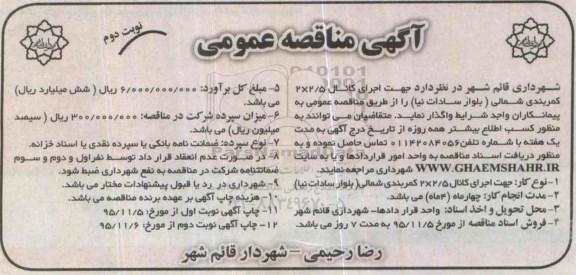 نوبت دوم
آگهی مناقصه عمومی
شهرداری قائم شهر در نظر دارد جهت اجرای کانال ۲×۲/۵
کمربندی شمالی ( بلوار سادات نیا) را از طریق مناقصه عمومی به
پیمانکاران واجد شرایط واگذار نمایند. متقاضیان می توانند به
منظور کسب اطلاع بیشتر همه روزه از تاریخ درج آگهی به مدت
یک هفته با شماره تلفن ۰۱۱۴۲۰۸۴۰۵۶ تماس حاصل نموده و به
منظور دریافت اسناد مناقصه به واحد امور قراردادها و یا به سایت
WWW.GHAEMSHAHR.IR شهرداری مراجعه نمایند.
۱- نوع کار: جهت اجرای کانال ۲×۲/۵ کمربندی شمالی( بلوار سادات نیا)
۲- مدت انجام کار: چهارماه (۴ماه) می باشد.
۳- محل تحویل و اخذ اسناد: واحد قرار دادها- شهرداری قائم شهر
۴- فروش اسناد مناقصه از مورخ ۹۵/۱۱/۵ به مدت ۷ روز می باشد.
۵- مبلغ کل برآورد: ۶/۰۰۰/۰۰۰/۰۰۰ ریال ( شش میلیارد ریال)
می باشد.
۶- میزان سپرده شرکت در مناقصه: ۳۰۰/۰۰۰/۰۰۰ ریال ( سیصد
میلیون ریال) می باشد.
۷- نوع سپرده: ضمانت نامه بانکی یا سپرده نقدی یا اسناد خزانه.
۸- در صورت عدم انعقاد قرار داد توسط نفراول و دوم و سوم
ضمانتنامه شرکت در مناقصه به نفع شهرداری ضبط شود.
۹- شهرداری در رد یا قبول پیشنهادات مختار می باشد.
۱۰- هزینه چاپ آگهی بر عهده برنده مناقصه می باشد.
۱۱- چاپ آگهی نوبت اول از مورخ: ۹۵/۱۱/۵
۱۲- چاپ آگهی نوبت دوم از مورخ: ۹۵/۱۱/۶
رضا رحیمی – شهردار قائم شهر